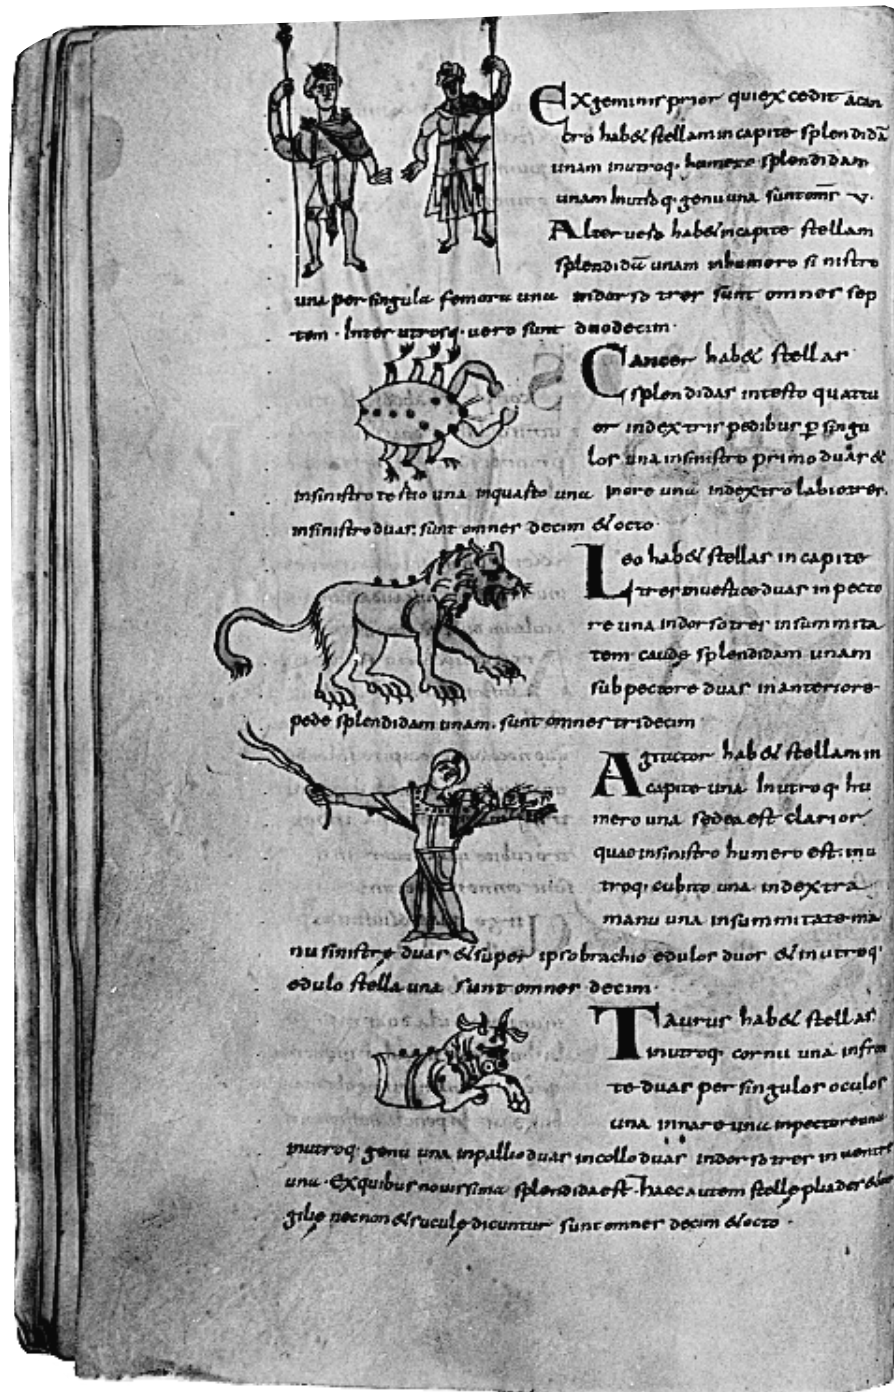 Exgeminis prior quiex cedit acan
cro hab& stellam incapite splendidā
unam inutroq· humero splendidam
unam Inutroq· genu una sunt oms v·
Alter uero hab& incapite stellam
splendidā unam inhumero sinistro
una per singula femora una indorso tres sunt omnes sep
tem · Inter utrosq· uero sunt duodecim·
Cancer hab& stellas
splendidas intesto quattu
or indextris pedibus p singu
los una insinistro primo duas &
insinistro tertio una inquarto una inore una indextro labio tres
insinistro duas· sunt omnes decim & octo·
Leo hab& stellas incapite
tres inuertice duas inpecto
re una indorso tres insummita
tem caude splendidam unam
sub pectore duas inanteriore
pede splendidam unam· sunt omnes tridecim
Agitator hab& stellam in
capite una Inutroq· hu
mero una sedea est clarior
quae insinistro humero est· inu
troq· cubito una indextra
manu una insummitate ma
nu sinistre duas & super ipso brachio edulos duos & inutroq·
edulo stella una sunt omnes decim·
Taurus hab& stellas
inutroq· cornu una infron
te duas per singulos oculos
una innare una inpectore una
inutroq· genu una inpallio duas incollo duas indorso tres in uentre
una· Exquibus nouissima splendida est· haec autem stelle pliades &uer
gilie necnon &sucule dicuntur sunt omnes decim &octo·